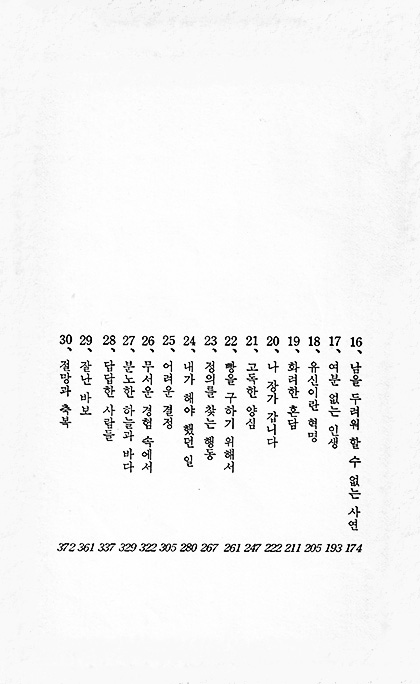 16、 남을 두려워 할 수 없는 사연 174
17、 여분 없는 인생 193
18、 유신이란 혁명 205
19、 화려한 혼담 211
20、 나 장가 갑니다 222
21、 고독한 양심 247
22、 빵을 구하기 위해서 261
23、 정의를 찾는 행동 267
24、 내가 해야 했던 일 280
25、 어려운 결정 305
26、 무서운 경험 속에서 322
27、 분노한 하늘과 바다 329
28、 답답한 사람들 337
29、 잘난 바보 361
30、 절망과 축복 372